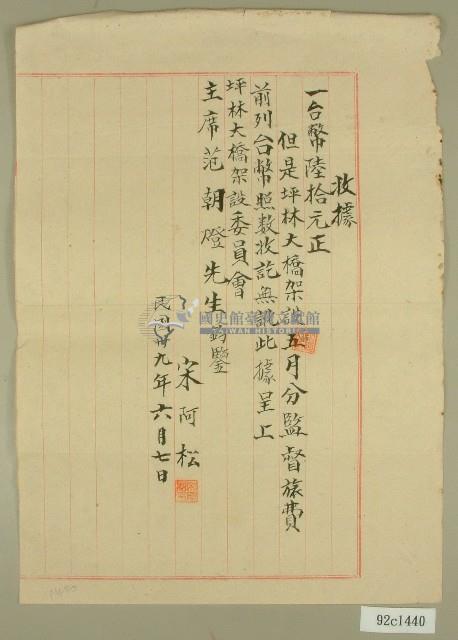 收據
一台幣陸拾元正
但是坪林大橋架設五月分監督旅費
前列台幣照数收訖無訛此據呈上
坪林大橋架設委員會
主席范朝燈先生鈞鑒
宋阿松
民国卅九年六月七日
國史館臺灣文獻館
TAIWAN HISTORICA
92c1440